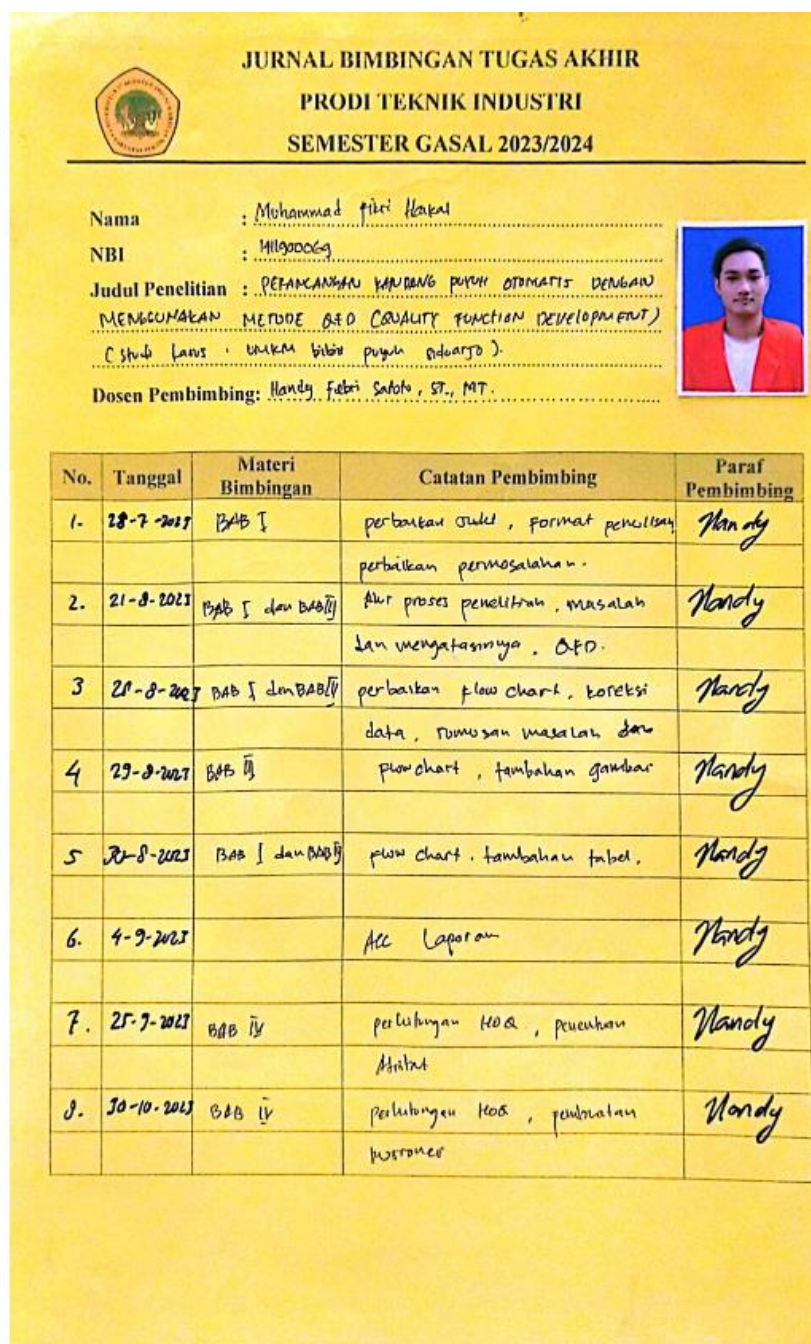 JURNAL BIMBINGAN TUGAS AKHIR
PRODI TEKNIK INDUSTRI
SEMESTER GASAL 2023/2024
Nama : Muhammad Fikri Haikal
NBI : 1411900069
Judul Penelitian : PERANCANGAN KANDANG PUYUH OTOMATIS DENGAN
MENGGUNAKAN METODE QFD (QUALITY FUNCTION DEVELOPMENT)
(Studi kasus : UMKM bibit puyuh sidoarjo).
Dosen Pembimbing: Handy Febri Satoto, ST., MT.
No. Tanggal Materi Bimbingan Catatan Pembimbing Paraf Pembimbing
1. 28-7-2023 BAB I perbaikan Judul, format penulisan Handy
perbaikan permasalahan.
2. 21-8-2023 BAB I dan BAB III Alur proses penelitian, masalah Handy
dan mengatasinya, QFD.
3 28-8-2023 BAB I dan BAB perbaikan flow chart, koreksi Handy
data, rumusan masalah dan
4 29-8-2023 BAB III flow chart, tambahan gambar Handy
5 30-8-2023 BAB I dan BAB flow chart, tambahan tabel. Handy
6. 4-9-2023 Acc Laporan Handy
7. 25-9-2023 BAB IV perhitungan HOQ, penentuan Handy
Atribut
8. 30-10-2023 BAB IV perhitungan HOQ, pembuatan Handy